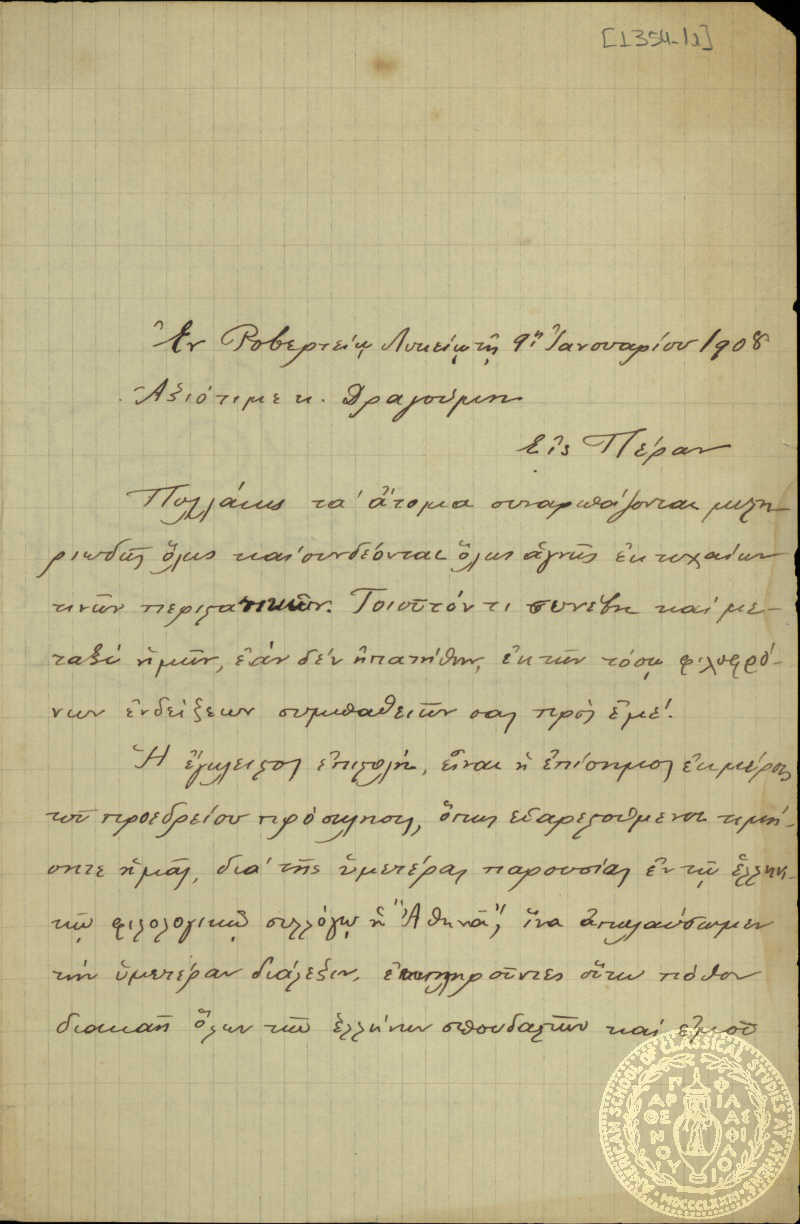 [1354-1a]
Ἐν Ροβερτείῳ Λυκείῳ τῇ 9ῃ Ἰανουαρίου 1908
Ἀξιότιμε κ. Δραγούμη
Εἰς Πέραν
Πολλάκις τὰ ἄτομα συναρπάζονται
ὅλως καὶ συνδέονται ὅλως ἁγνῶς ἐκ τυχαίων
τινῶν περιστατικῶν. Τοιοῦτόν τι συνέβη καὶ με-
ταξὺ ἡμῶν, ἐὰν δέν ἠπατήθην, ἐκ τῶν τόσῳ φιλοφρό-
νων ἐνδείξεων συμπαθειῶν σας πρὸς ἐμέ.
Ἡ ἔγκλειστος ἐπιστολή, εἶναι ἡ ἐπίσημος ἐκ μέρους
τοῦ προεδρείου πρόσκλησις, ὅπως εὐαρεστούμενοι τιμή-
σητε ἡμᾶς, διὰ τῆς ὑμετέρας παρουσίας ἐν τῷ ἑλληνι-
κῷ φιλολογικῷ συλλόγῳ ἡ "Ἀθηνᾶ", ἵνα ἀπολαύσωμεν
τὴν ὑμετέραν διάλεξιν, ἐκπληροῦντες οὕτω πόθον
διακαῆ ὅλων τῶν ἑλλήνων σπουδαστῶν καὶ ἐμοῦ
AMERICAN SCHOOL OF CLASSICAL STUDIES AT ATHENS
ΠΑΡΘΕΝΟΥ ΦΙΛΑΣ ΦΙΛΟΙ
MDCCCLXXXI